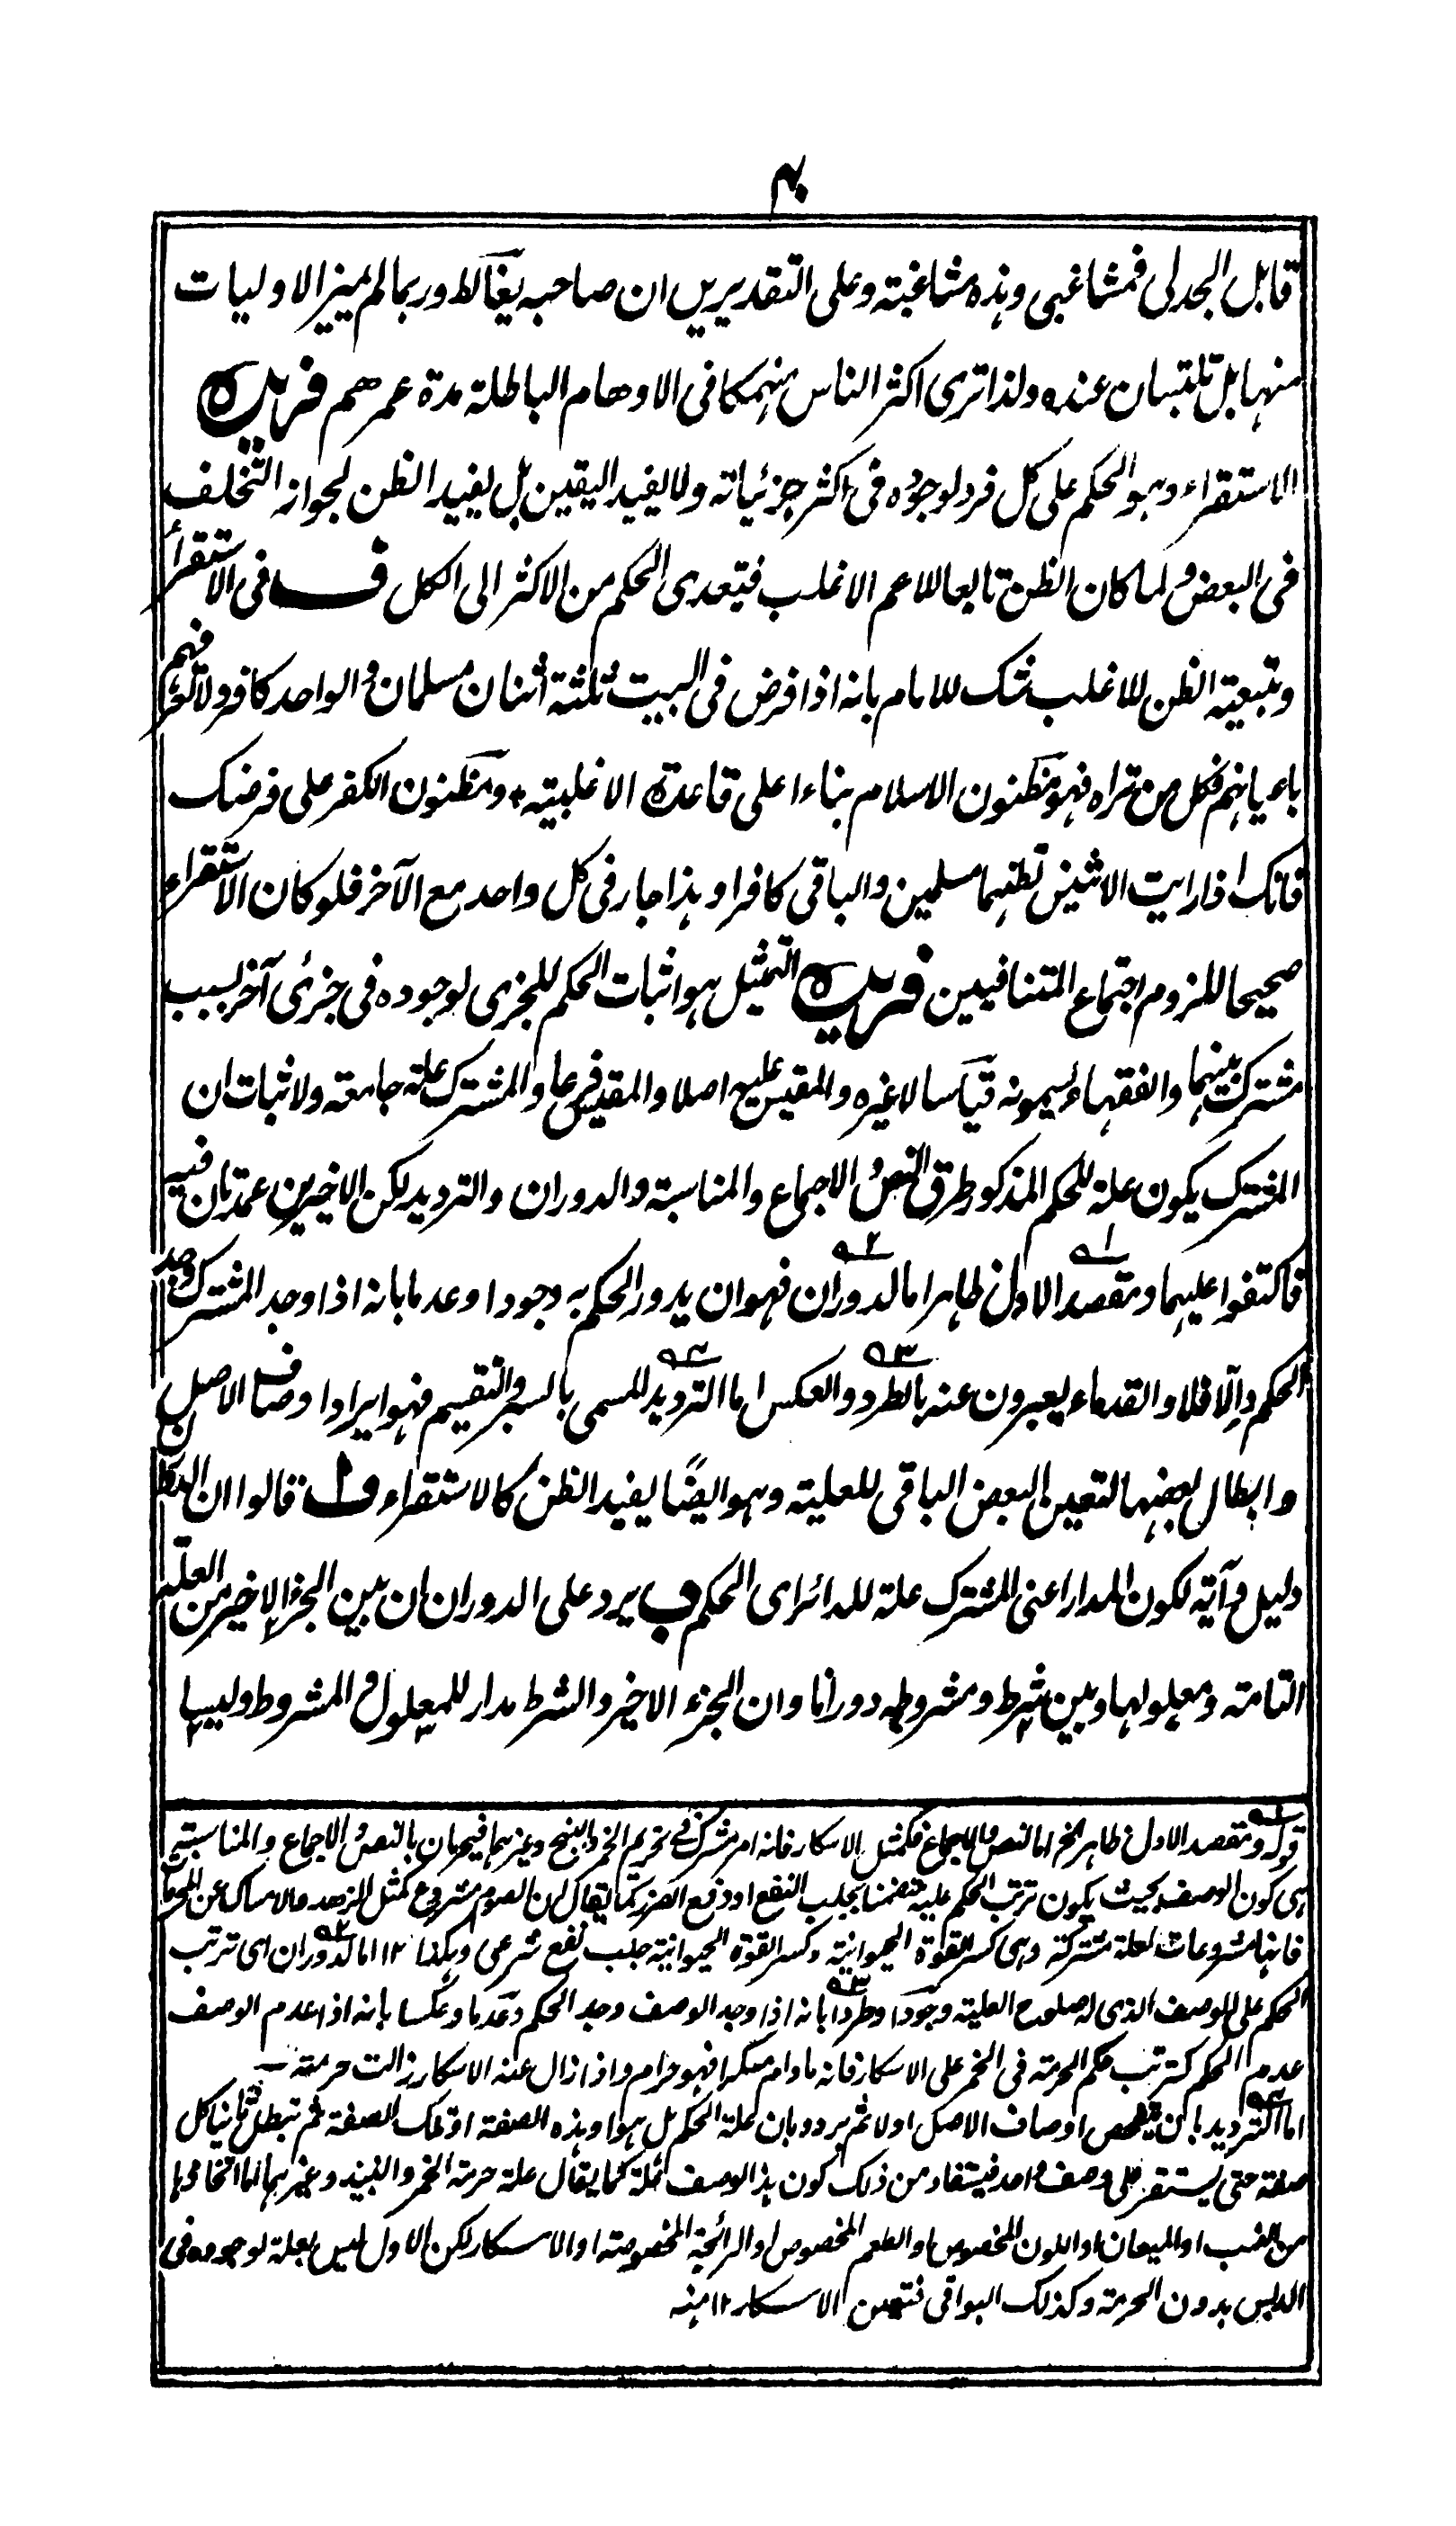 ۴۰
قابل الجدلی فمشاغبی وہذہ مشاغبتہ وعلی التقدیرین ان صاحبہ یغالط وربما لم یمیز الاولیات
منہا بل تلتبسان عندہ ولذا تری اکثر الناس منہمکا فی الاوھام الباطلة مدة عمرھم فریدہ
الاستقراء وہو الحکم علی کل فرد لوجودہ فی اکثر جزئیاتہ ولا یفید الیقین بل یفید الظن لجواز التخلف
فی البعض ولما کان الظن تابعا للاعم الاغلب فیتعدی الحکم من الاکثر الی الکل ف فی الاستقراء
وتبعیتہ الظن للاغلب شک للامام بانہ اذا فرض فی البیت ثلثة اثنان مسلمان والواحد کافر ولا تعلم
باعیانہم فکل من تراہ فہو مظنون الاسلام بناءا علی قاعدة الاغلبیتہ ومظنون الکفر علی فرضک
فانک اذا رایت الاثنین تظنہما مسلمین والباقی کافرا وہذا جار فی کل واحد مع الآخر فلو کان الاستقراء
صحیحا للزوم اجتماع المتنافیین فریدہ التمثیل ہو اثبات الحکم للجزئی لوجودہ فی جزئی آخر لسبب
مشترک بینہما والفقہاء یسمونہ قیاسا لا غیرہ والمقیس علیہ اصلا والمقیس فرعا والمشترک علة جامعتہ ولاثبات ان
المشترک یکون علة للحکم المذکور طرق النص والاجماع والمناسبتہ والدوران والتردید لکن الاخیرین عمدتان فیہ
فاکتفوا علیہما ومقصد الاول ظاہر اما الدوران فہو ان یدور الحکم بہ وجودا وعدما بانہ اذا وجد المشترک وجد
الحکم والّا فلا والقدماء یعبرون عنہ بالطرد والعکس اما التردید المسمی بالسبر والتقسیم فہو ایراد اوصاف الاصل
وابطال بعضہا لتعیین البعض الباقی للعلیتہ وہو ایضًا یفید الظن کالاستقراء ف ا قالوا ان
دلیل وآیتہ لکون المدار اعنی المشترک علة للدائر ای الحکم ف یرد علی الدوران ان بین الجزء الاخیر من العلة
التامتہ ومعلولہا وبین شرط ومشروطہ دورانا وان الجزء الاخیر والشرط مدار للمعلول والمشروط ولیسا
قولہ ومقصد الاول ظاہر الخ اما النص والاجماع فکمثل الاسکار فانہ امر مشترک فی تحریم الخمر والبنج وغیرہما فیحرمان بالنص والاجماع والمناسبتہ
ہی کون الوصف بحیث یکون ترتب الحکم علیہ متضمنا بجلب النفع او دفع الضرر کما یقال ان الصوم مشروع کمثل الزہد والامساک عن
فانہا مشروعات لعلة مشترکتہ وہی کسر القوة الحیوانیتہ وکسر القوة الحیوانیتہ جلب نفع شرعی وہکذا ۱۲ اما الدوران ای ترتب
الحکم علی الوصف الذی لہ صلوح العلیتہ وجودا وطردا بانہ اذا وجد الوصف وجد الحکم وعدما وعکسا بانہ اذا عدم الوصف
عدم الحکم کترتب حکم الحرمتہ فی الخمر علی الاسکار فانہ مادام مسکرا فہو حرام واذا زال عنہ الاسکار زالت حرمتہ
اما التردید بان یتفحص اوصاف الاصل اولا ثم یردد بان علة الحکم بل ہو او ہذہ الصفتہ او تلک الصفتہ ثم تبطل ثانیا کل
صفتہ حتی یستقر علی وصف واحد فیستفاد من ذلک کون ہذا الوصف علة کما یقال علة حرمتہ الخمر والنبیذ وغیرہما اما اتخاذہا
من العنب او المیعان او اللون المخصوص او الطعم المخصوص او الرائحتہ المخصوصتہ او الاسکار لکن الاول لیس بعلة لوجودہ فی
الدبس بدون الحرمتہ وکذلک البواقی فتعین الاسکار ۱۲ منہ